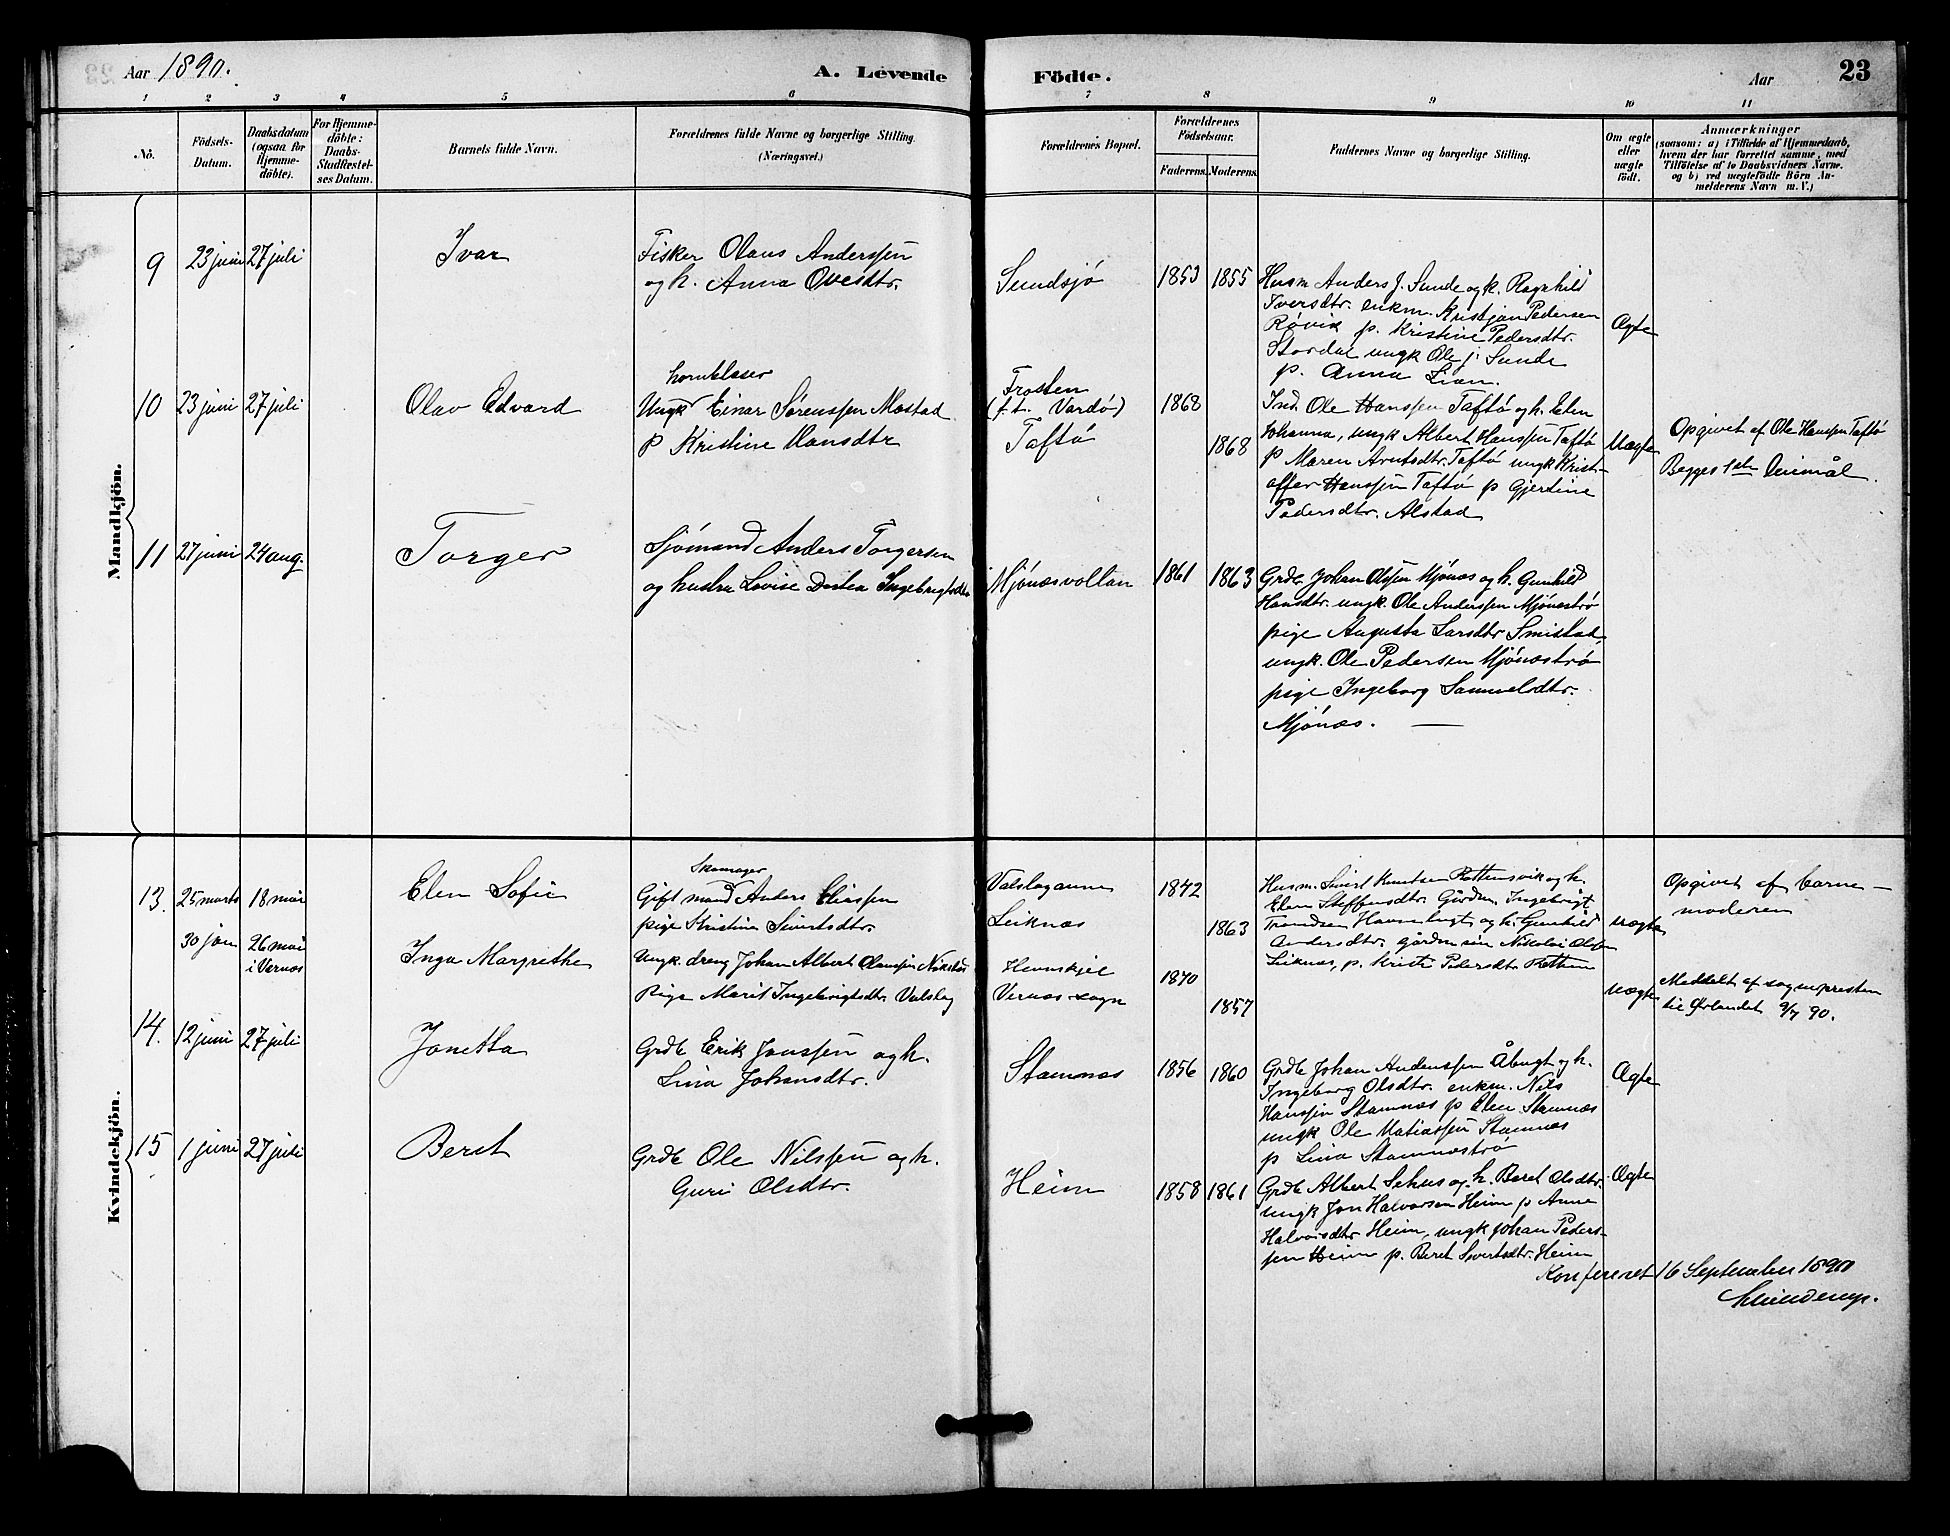 Aar 1890.
A. Levende
Födte.
Aar
23
1
2
3
4
5
6
7
8
9
10
11
Nö.
Födsels-
Datum.
Daabsdatum
(ogsaa for
Hjemme-
döbte).
For Hjemme-
döbte:
Daabs-
Stadfæstel-
ses Datum.
Barnets fulde Navn.
Forældrenes fulde Navne og borgerlige Stilling.
(Næringsvei.)
Forældrenes Bopæl.
Forældrenes
Födselsaar.
Faderens.
Moderens.
Faddernes Navne og borgerlige Stilling.
Om ægte
eller
uægte
födt.
Anmærkninger
(saasom: a) i Tilfælde af Hjemmedaab,
hvem der har forrettet samme, med
Tilföielse af to Daabsvidners Navne.
og b) ved uægtefödte Börn An-
melderens Navn m. V.)
Mandkjön.
9
23 juni
27 juli
Ivar
Fisker Olaus Anderssen
og h. Anna Ovesdtr.
Sundsjø
1853
1855
Husm Anders J. Sunde og k. Ragnhild
Iversdtr. enkm. Kristjan Pedersen
Røvik p. Kristine Pedersdtr.
Stordal ungk Ole J. Sunde
p. Anna Lian.
Ægte
10
23 juni
27 juli
Olav Edvard
hornblaser
Ungk Einar Sørenssen Mostad
p Kristine Hansdtr
Frosten
(f.t. Vardø)
Taftø
1868
1868
Ind. Ole Hanssen Taftø og h. Elen
Johanna, ungk Albert Hanssen Taftø
p Maren Arntsdtr. Taftø ungk Krist-
offer Hanssen Taftø p Gjertine
Pedersdtr. Alstad
Uægte
Opgivet af Ole Hanssen Taftø
Begges 1ste Leiermål.
11
27 juni
24 aug.
Torger
Sjømand Anders Torgersen
og hustru Lovise Dortea Ingebrigtsdtr
Mjønæsvollan
1861
1863
Grdb. Johan Olssen Mjønæs og h. Gunhild
Hansdtr. ungk. Ole Anderssen Mjønæstrø
pige Augusta Larsdtr Smistad
ungk. Ole Pedersen Mjønæstrø
pige Ingeborg Samuelsdtr.
Mjønæs.
Kvindekjön.
13.
25 marts
18 mai
Elen Sofie
Skomager
Gift mand Anders Eliassen
pige Kristine Sivertsdtr.
Valslaganne
Leiknæs
1842
1863
Husm. Sivert Knutsen Rottemsvik og h.
Elen Steffensdtr. Gårdm. Ingebrigt
Trondsen Havnbugt og h. Gunhild
Andersdtr. gårdm søn Nikolai Olssen
Leiknæs, p. Kristi Pedersdtr Rottem
Uægte
Opgivet af barne-
moderen
30 jan
26 mai
i Vernæs
Inga Margrethe
Ungk. dreng Johan Albert Olaussen
Pige Marit Ingebrigtsdtr. Valslag
Hevnskjel
Vernæs sogn
1870
1857
Uægte
Meddelt af sognepresten
til Ørlandet 9/7 90.
14.
12 juni
27 juli
Jonetta
Grdb Erik Jonssen og h.
Lina Johansdtr.
Stamnæs
1856
1860
Grdb Johan Anderssen Åbugt og h.
Ingeborg Olsdtr. enkm. Nils
Hanssen Stamnæs p Elen Stamnæs
ungk Ole Matiassen Stamnæs
p Lina Stamnæstrø
Ægte
15
1 juni
27 juli
Beret
Grdb Ole Nilssen og h.
Guri Olsdtr.
Heim
1858
1861
Grdb Albert Sehus og h. Beret Olsdtr.
ungk Jon Halvorsen Heim p Anne
Halvorsdtr Heim, ungk Johan Peders-
sen Heim p. Beret Sivertsdtr. Heim
Ægte
Konfereret 16 September 1890